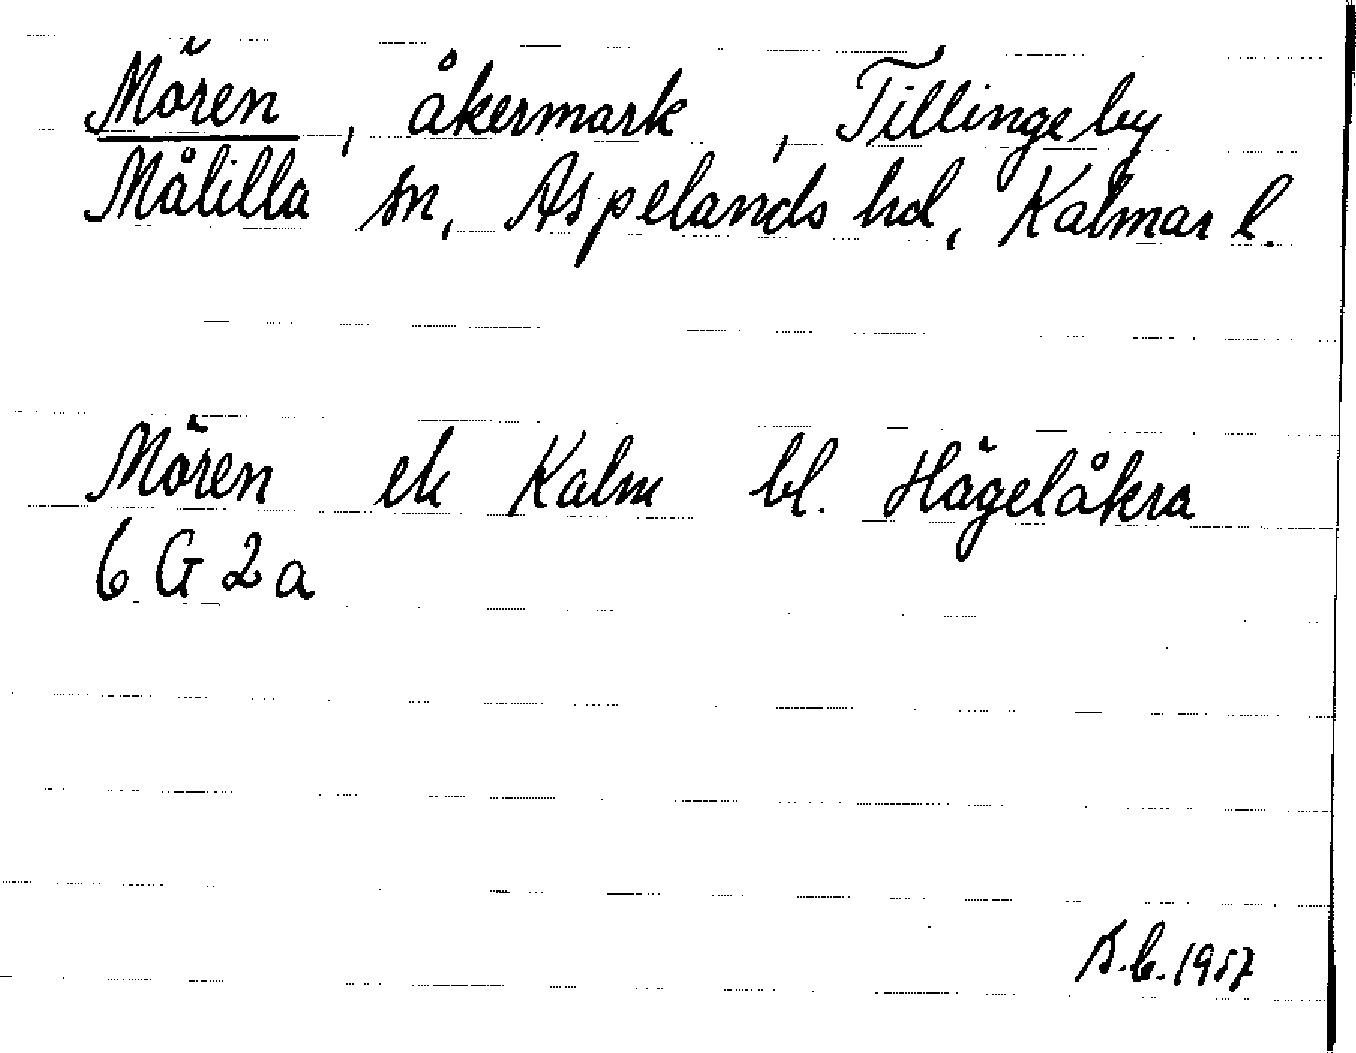 Mören, åkermark, Tillingeby
Målilla sn, Aspelands hd, Kalmar l.
Mören ek Kalm bl. Hägelåkra
6 G 2 a
1957